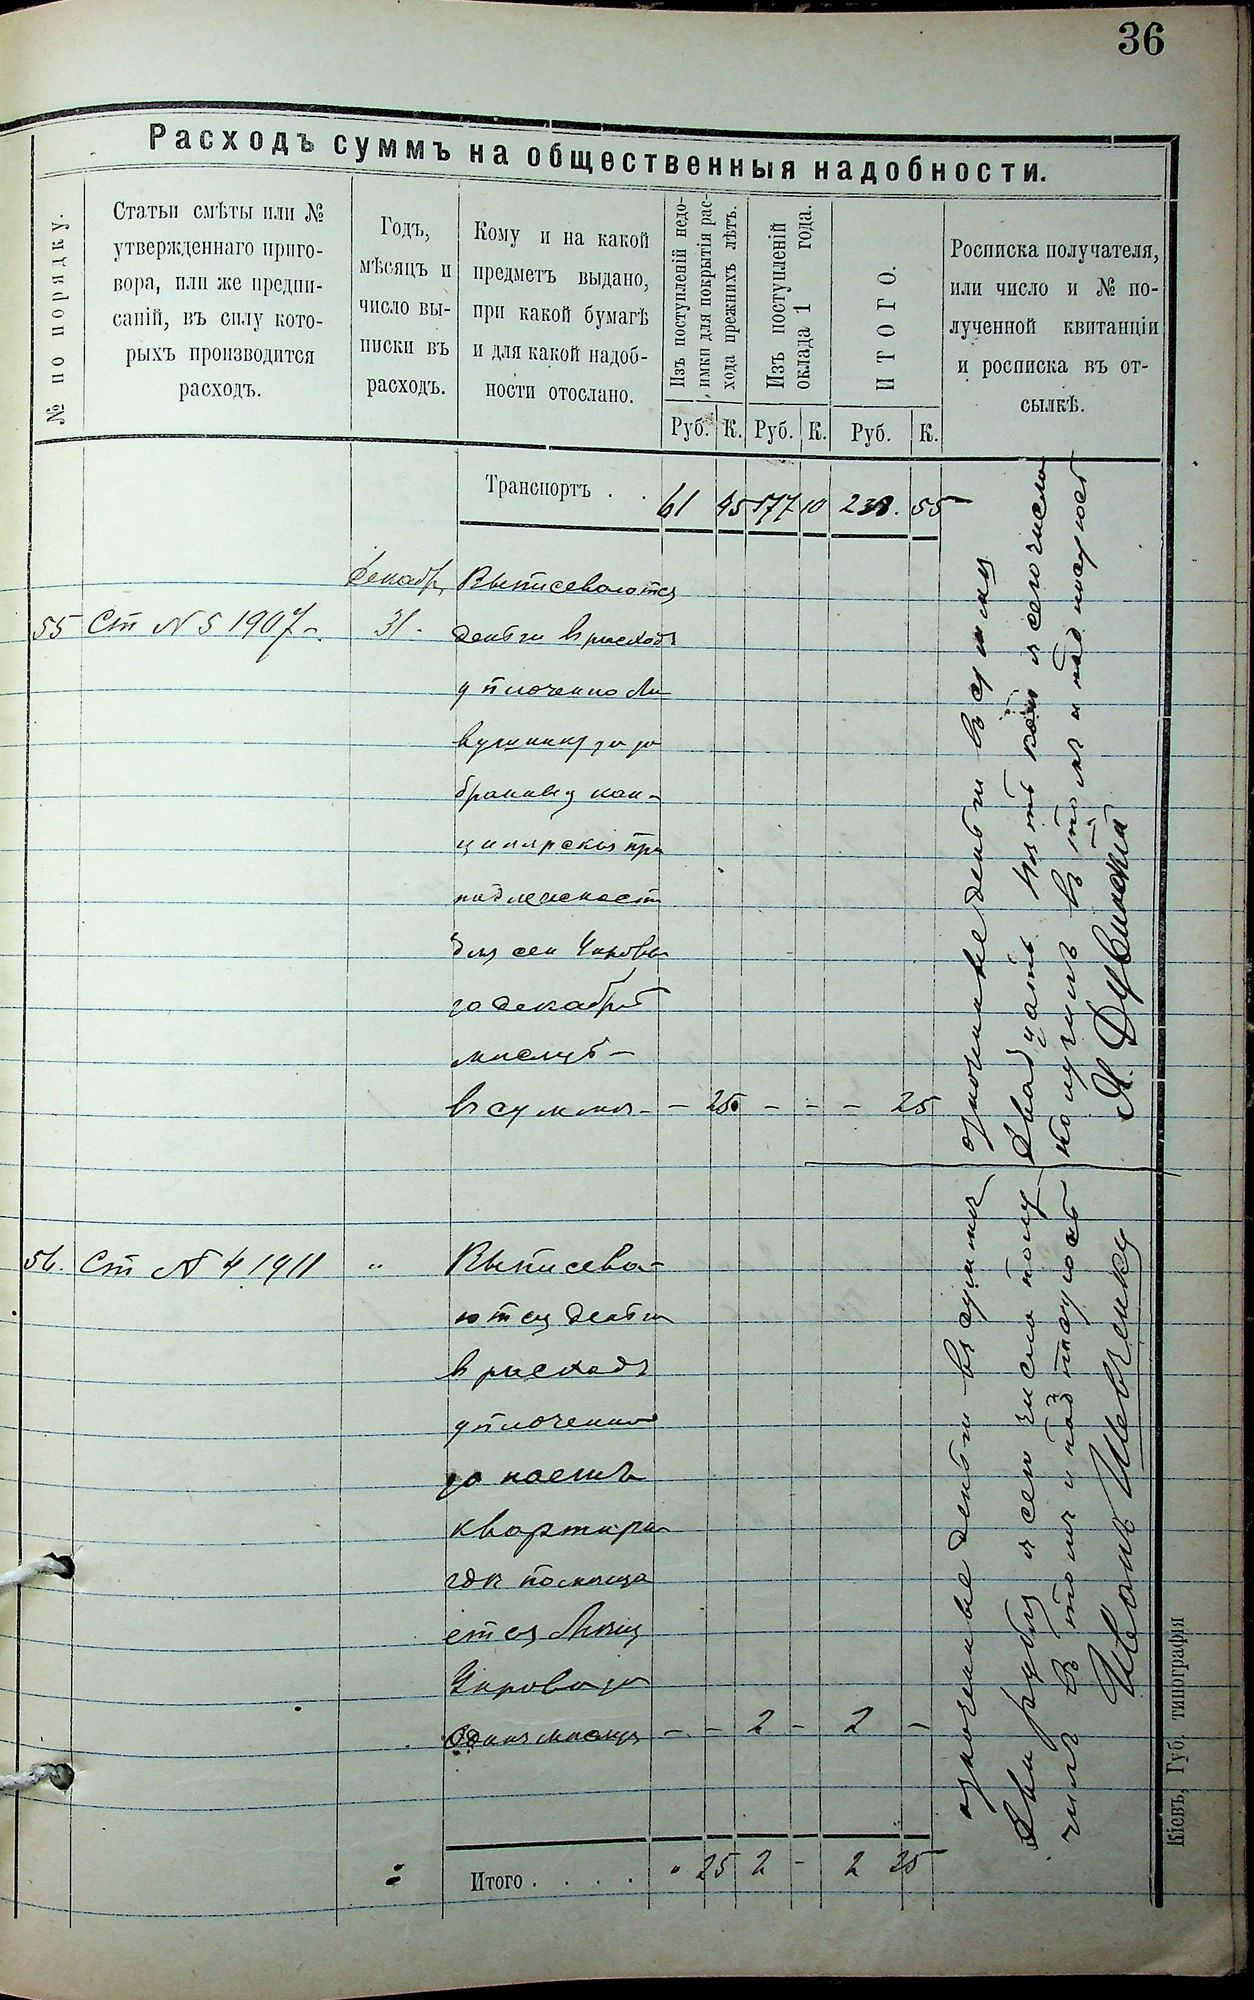 36
Расходъ суммъ на общественныя надобности.
№ по порядку.
Статьи смѣты или №
утвержденнаго приго-
вора, или же предпи-
саній, въ силу кото-
рыхъ производится
расходъ.
Годъ,
мѣсяцъ и
число вы-
писки въ
расходъ.
Кому и на какой
предметъ выдано,
при какой бумагѣ
и для какой надоб-
ности отослано.
Изъ поступленій недо-
имки для покрытія рас-
хода прежнихъ лѣтъ.
Изъ поступленій
оклада 1 года.
ИТОГО.
Росписка получателя,
или число и № по-
лученной квитанціи
и росписка въ от-
сылкѣ.
Руб. К. Руб. К. Руб. К.
Транспортъ . . 61 45 177 10 238. 55
Декабр,
Выписеваются
55 Ст N 5 1907 31.
деньги в расходъ
уплочено
за за
бранные кан-
целярския при
надлежност
для сел Управы
за декабрь
месяць
в сумми - - 25 - - - 25
озночиные деньги в сумму
Двадцать пять коп я сего числа
получилъ в томъ и подписуюсь
Я. Дувинскій
56. Ст N 4 1911 "
Выписева-
ются деньги
в расходъ
уплочении
за наемъ
квартири
где помища
ется
Управа за
одинъ месяць - - 2 - 2 -
озноченые деньги в сумми
Два рубля я сего числа полу
чилъ в томъ и подписуюсь
Иванъ Шевченку
Итого . . . . . 25 2 - 2 25
Кіевъ, Губ. типографія